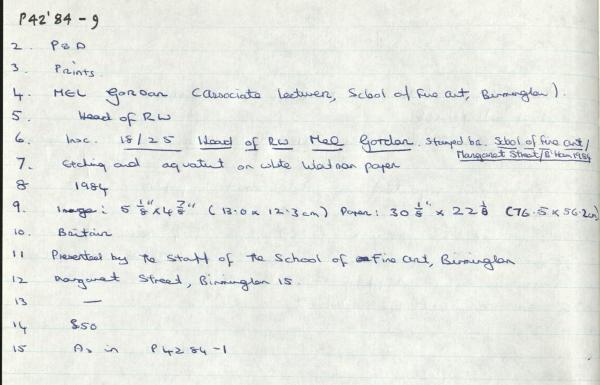 P42'84-9
2. P&D
3. Prints
4. MEL Gordon (Associate Lecturer, School of Fine Art, Birmingham).
5. Head of RW
6. Insc. 18/25 Head of RW Mel Gordon. Stamped School of Fine Art/
Margaret Street/B'Ham 1984
7. Etching and aquatint on white Watman paper
8 1984
9. Image: 5 1/8" x 4 7/8" (13.0 x 12.3cm) Paper: 30 1/8" x 22 1/8 (76.5 x 56.2cm)
10. Britain
11 Presented by the Staff of the School of Fine Art, Birmingham
12 Margaret Street, Birmingham 15.
13 —
14 £50
15 As in P42 84-1